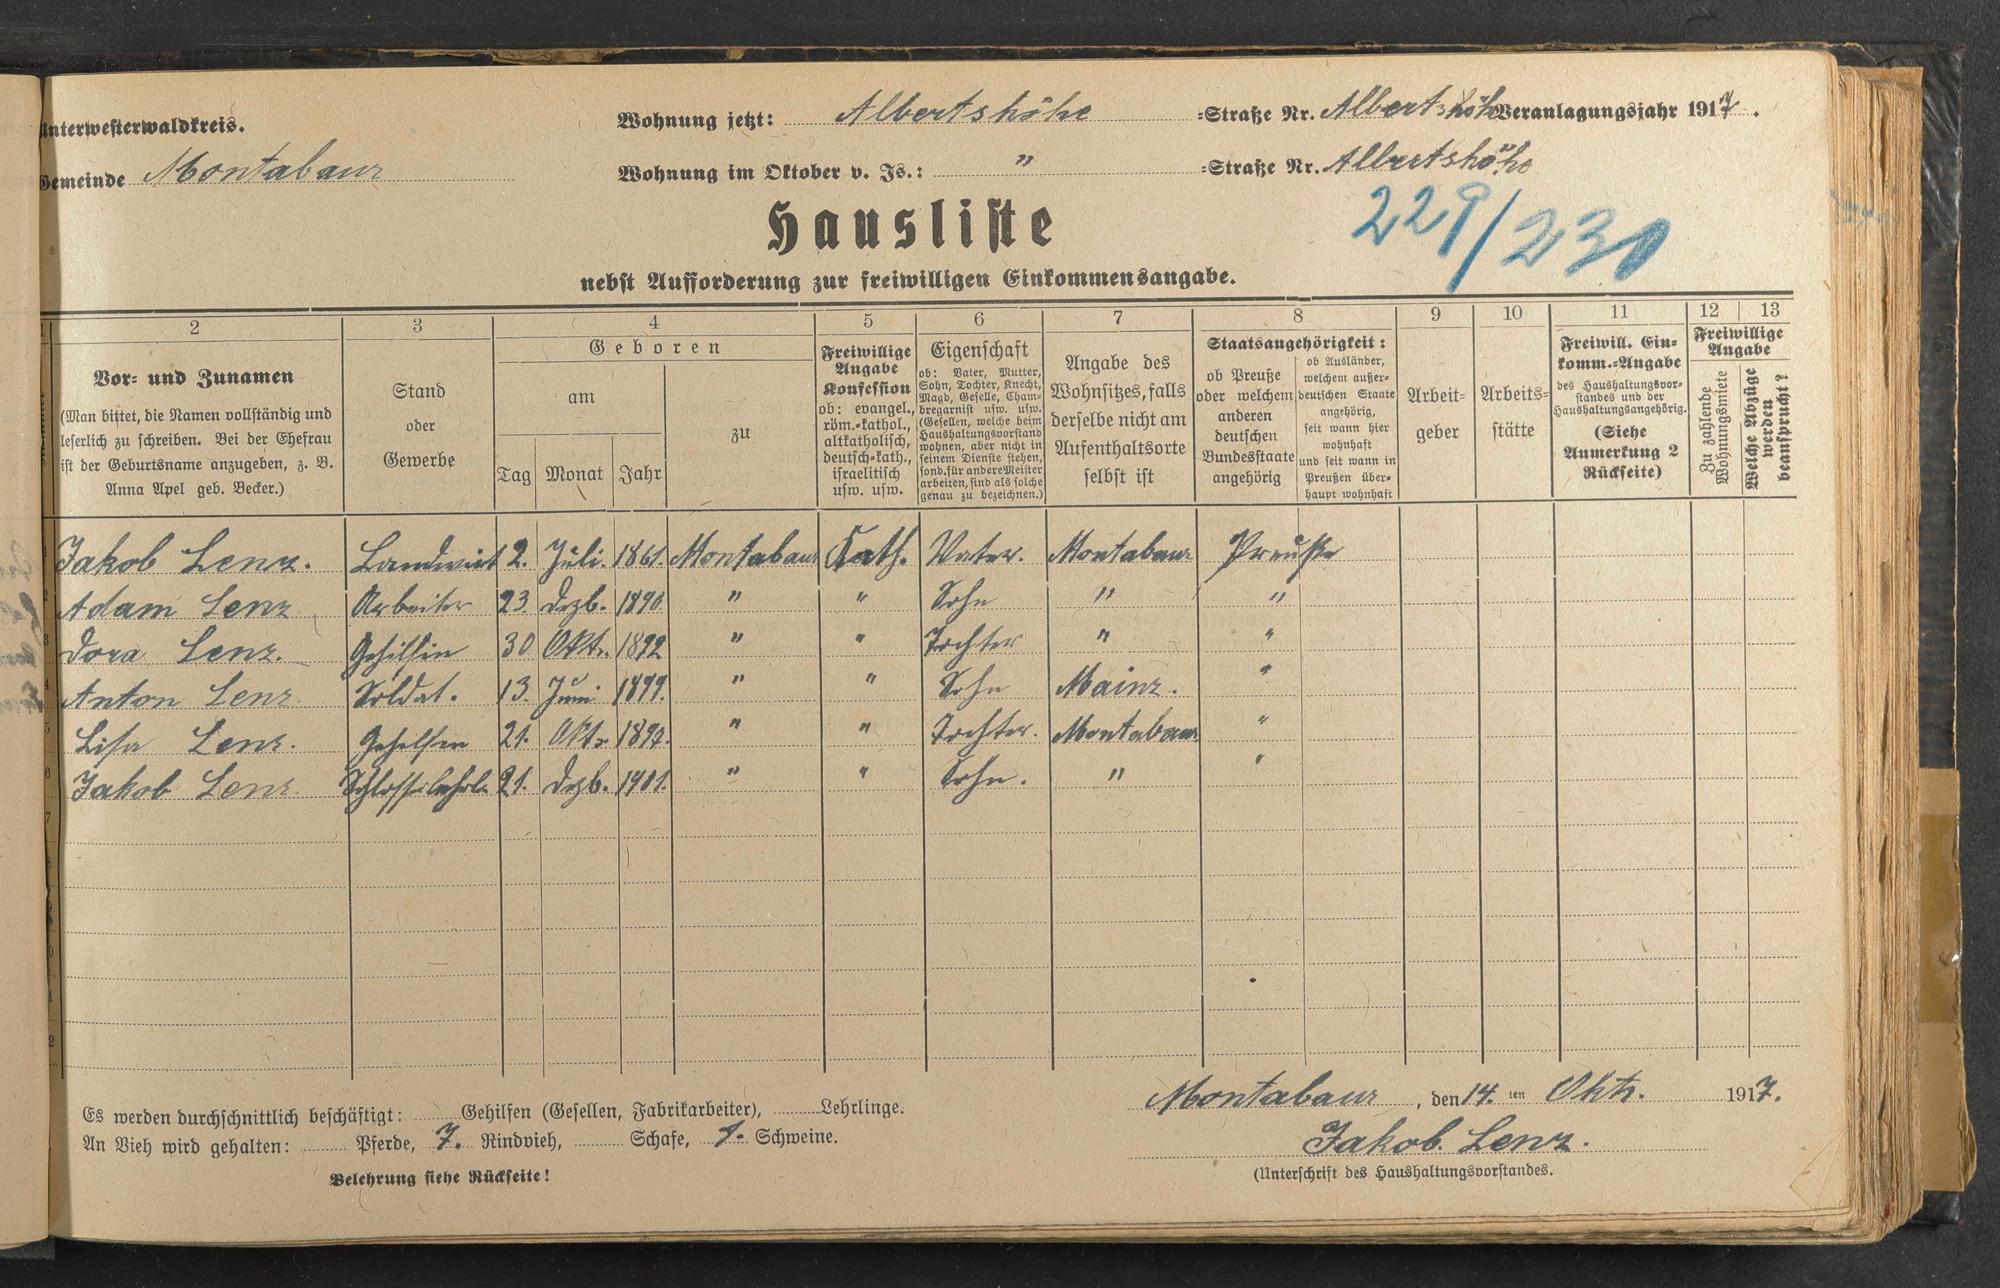 Unterwesterwaldkreis.
Wohnung jetzt: Albertshöhe =Straße Nr. Albertshöhe Veranlagungsjahr 1917.
Gemeinde Montabaur
Wohnung im Oktober v. Js.: " =Straße Nr. Albertshöhe
229/230
Hausliste
nebst Aufforderung zur freiwilligen Einkommensangabe.
2 3 4 5 6 7 8 9 10 11 12 13
Vor= und Zunamen
(Man bittet, die Namen vollständig und
leserlich zu schreiben. Bei der Ehefrau
ist der Geburtsname anzugeben, z. B.
Anna Apel geb. Becker.)
Stand
oder
Gewerbe
Geboren
am
Tag Monat Jahr
zu
Freiwillige
Angabe
Konfession
ob: evangel.,
röm.=kathol.,
altkatholisch,
deutsch=kath.,
israelitisch
usw. usw.
Eigenschaft
ob: Vater, Mutter,
Sohn, Tochter, Knecht,
Magd, Geselle, Cham=
bregarnist usw. usw.
(Gesellen, welche beim
Haushaltungsvorstand
wohnen, aber nicht in
seinem Dienste stehen,
sond. für andere Meister
arbeiten, sind als solche
genau zu bezeichnen.)
Angabe des
Wohnsitzes, falls
derselbe nicht am
Aufenthaltsorte
selbst ist
Staatsangehörigkeit:
ob Preuße
oder welchem
anderen
deutschen
Bundesstaate
angehörig
ob Ausländer,
welchem außer=
deutschen Staate
angehörig,
seit wann hier
wohnhaft
und seit wann in
Preußen über=
haupt wohnhaft
Arbeit=
geber
Arbeits=
stätte
Freiwill. Ein=
komm.=Angabe
des Haushaltungsvor=
standes und der
Haushaltungsangehörig.
(Siehe
Anmerkung 2
Rückseite)
Freiwillige
Angabe
Zu zahlende
Wohnungsmiete
Welche Abzüge
werden
beansprucht?
1 Jakob Lenz. Landwirt 2. Juli. 1861. Montabaur Kath. Vater. Montabaur Preuße
2 Adam Lenz Arbeiter 23. Dezb. 1890. " " Sohn " "
3 Dora Lenz. Gehilfin 30 Okt. 1892 " " Tochter " "
4 Anton Lenz. Soldat. 13. Juni 1899. " " Sohn Mainz. "
5 Lisa Lenz. Gehilfin 21. Okt. " " Tochter. Montabaur "
6 Jakob Lenz. Schlosserlehrl. 21. Dezb. 1901. " " Sohn. " "
7
8
9
0
1
2
Es werden durchschnittlich beschäftigt: Gehilfen (Gesellen, Fabrikarbeiter), Lehrlinge.
An Vieh wird gehalten: Pferde, 7. Rindvieh, Schafe, 1. Schweine.
Belehrung siehe Rückseite!
Montabaur, den 14. ten Okt. 1917.
Jakob. Lenz.
(Unterschrift des Haushaltungsvorstandes.